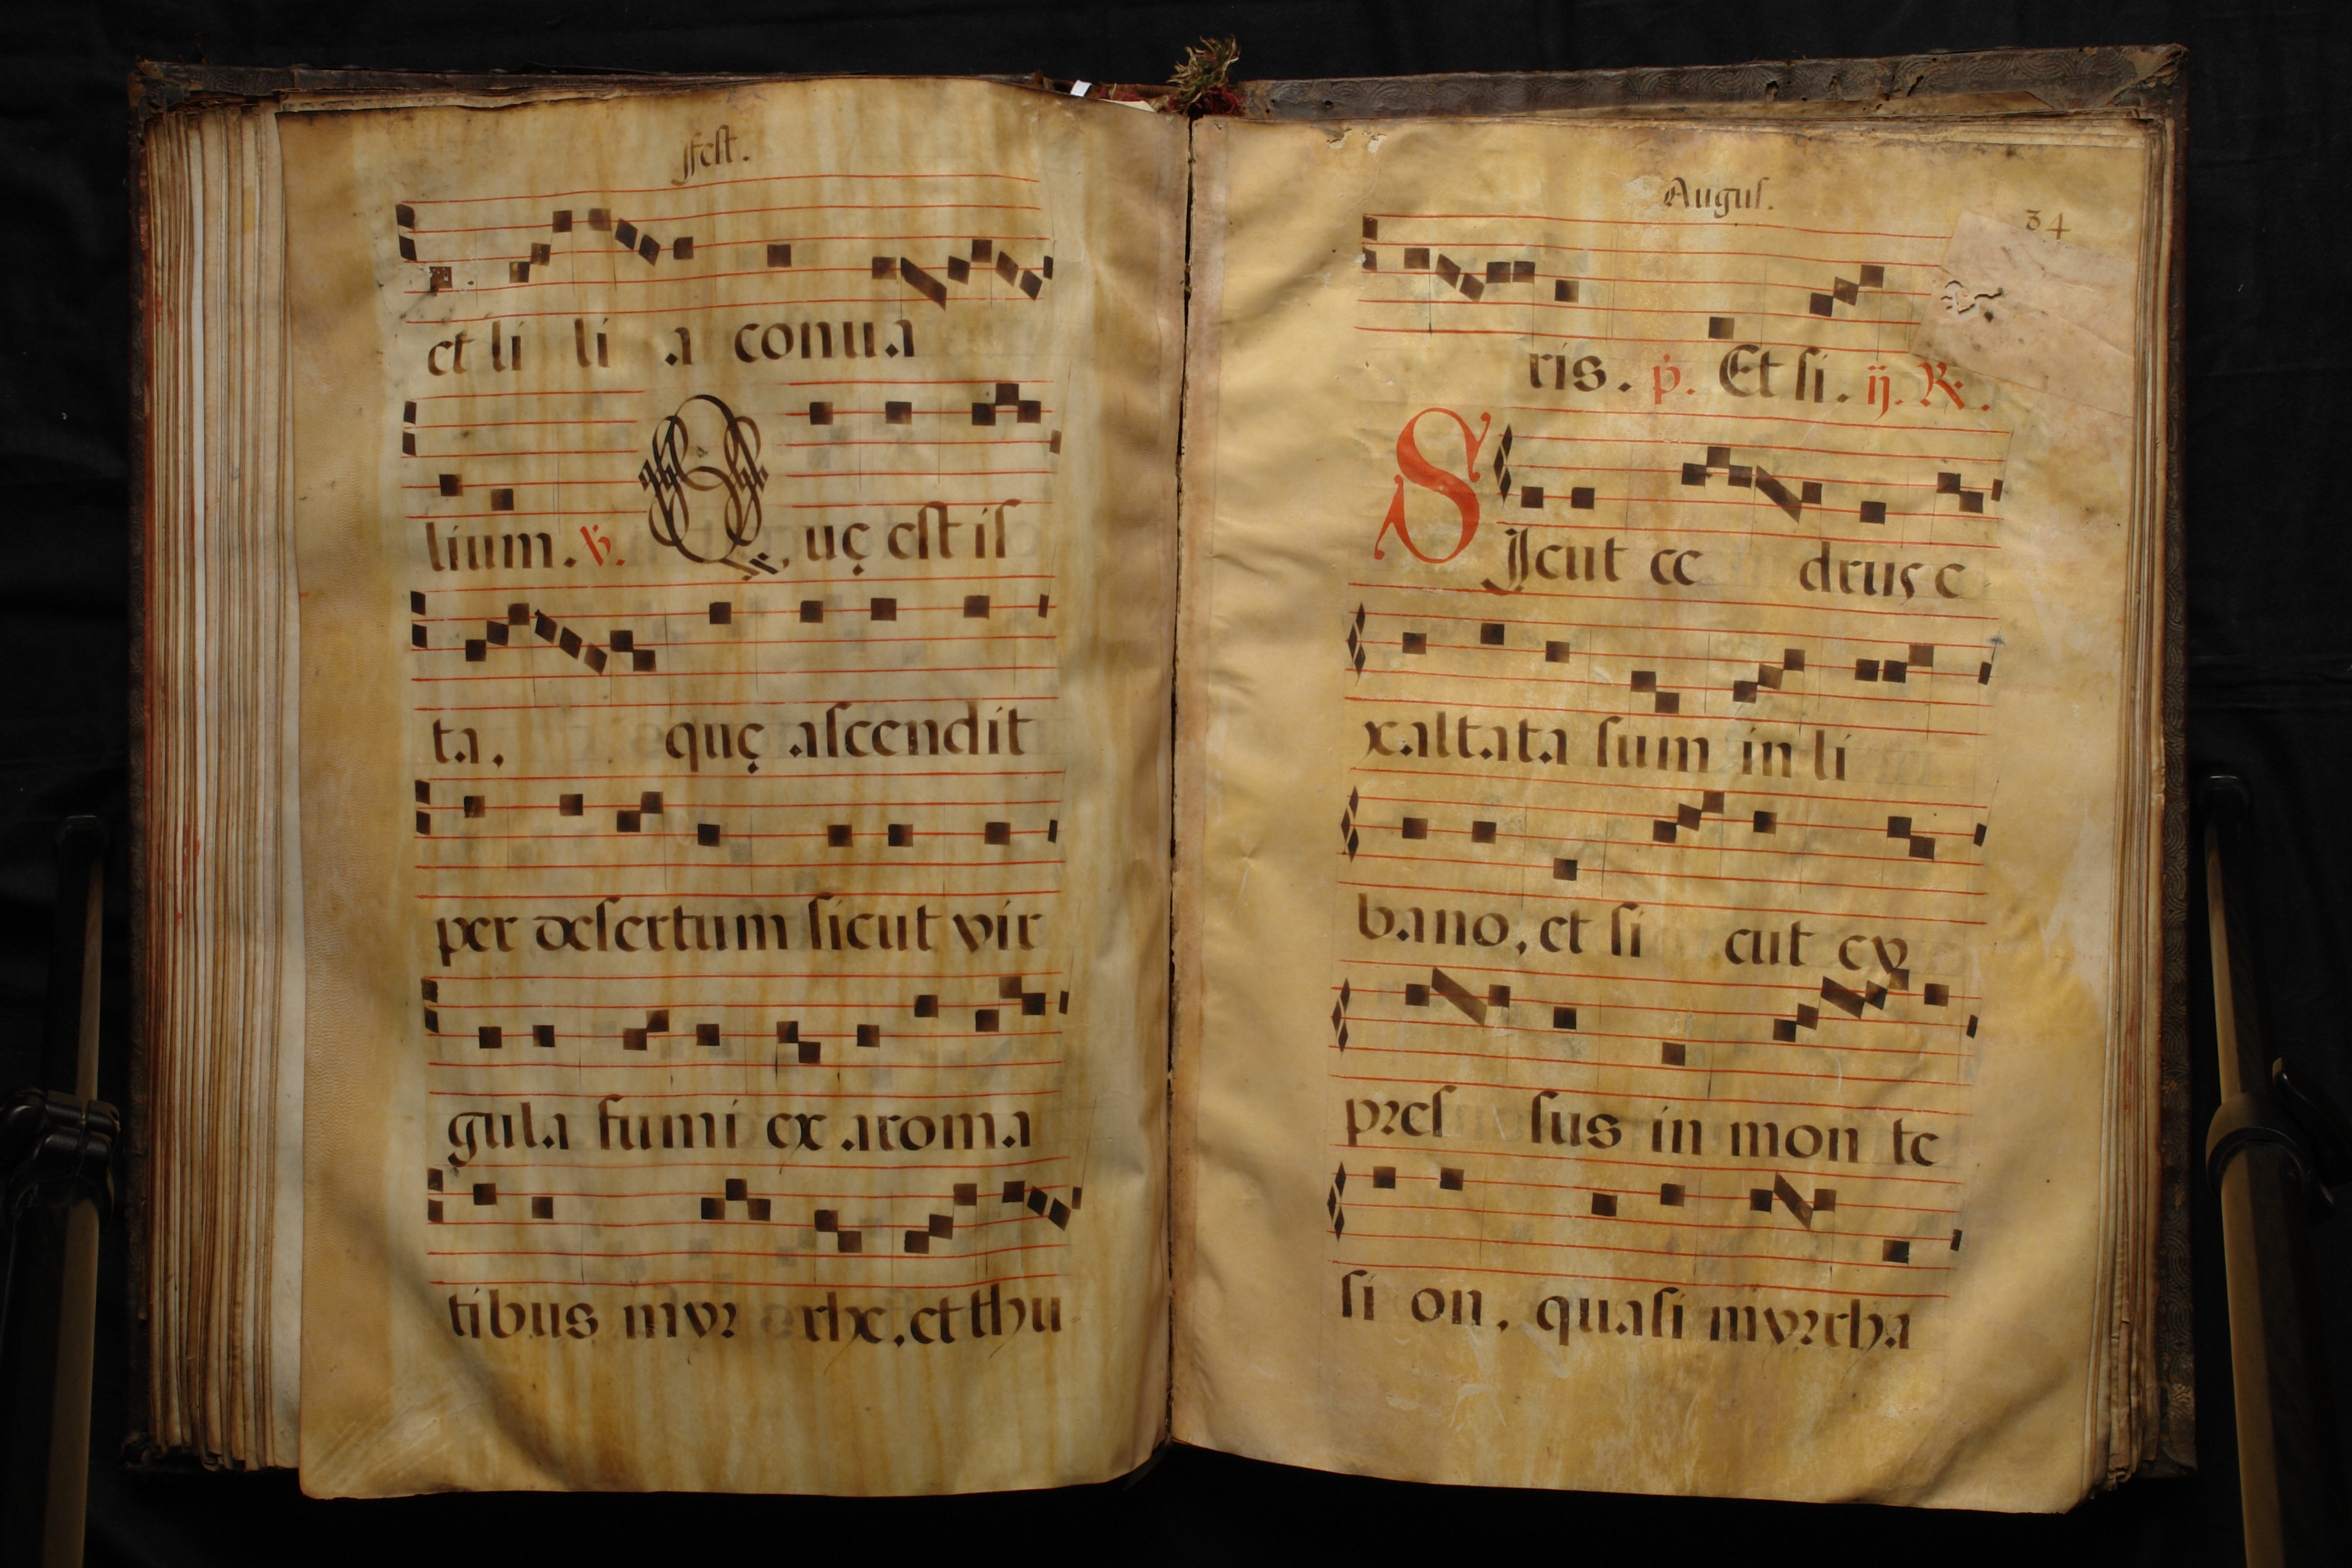 ffest.
et li li a conua
lium. ℣. Quę est is
ta, quę ascendit
per desertum sicut vir
gula fumi ex aroma
tibus myr rhe, et thu
Augus.
34
ris. p̄. Et si. ij. R.
SIcut ce drus e
xaltata sum in li
bano, et si cut cy
pres sus in mon te
si on, quasi myrrha